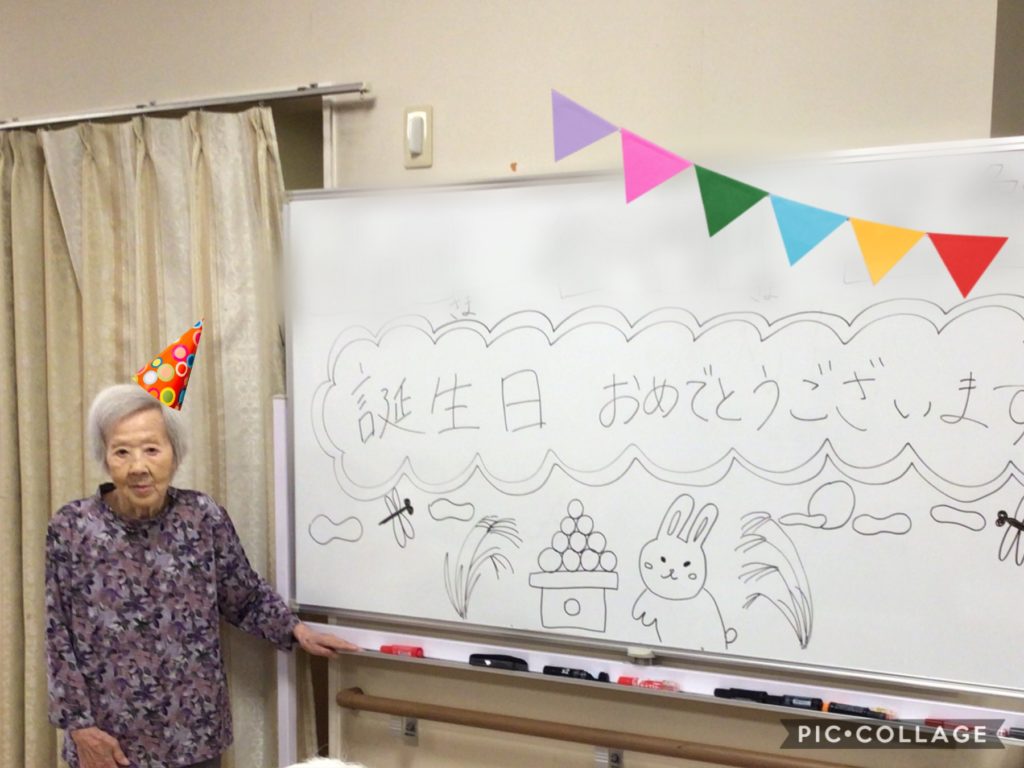 さま
誕生日 おめでとうございます
PIC•COLLAGE